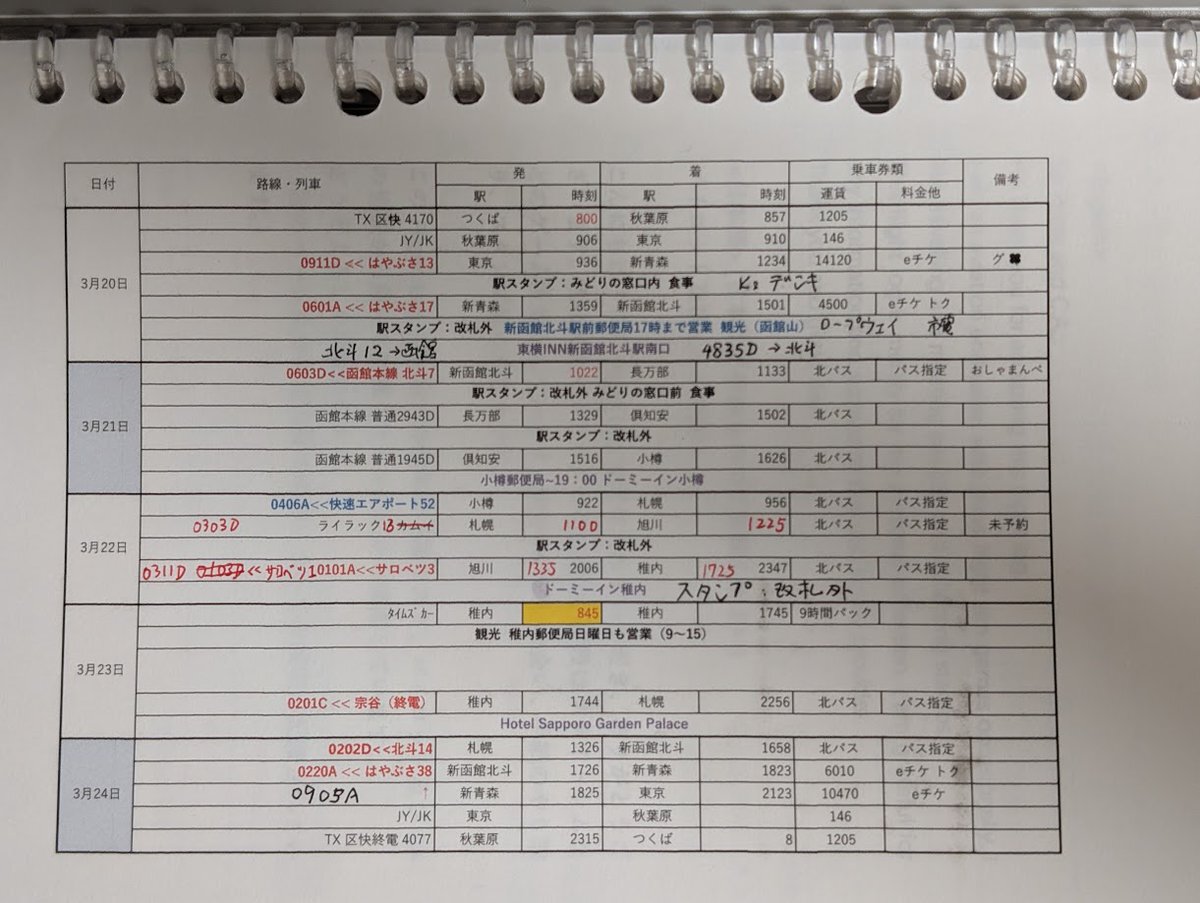 日付 路線・列車 発 着 乗車券類 備考
駅 時刻 駅 時刻 運賃 料金他
3月20日
TX 区快 4170 つくば 800 秋葉原 857 1205
JY/JK 秋葉原 906 東京 910 146
0911D << はやぶさ13 東京 936 新青森 1234 14120 eチケ グ
駅スタンプ：みどりの窓口内 食事 K's デンキ
0601A << はやぶさ17 新青森 1359 新函館北斗 1501 4500 eチケ トク
駅スタンプ：改札外 新函館北斗駅前郵便局17時まで営業 観光（函館山） ロープウェイ 市電
北斗12→函館 東横INN新函館北斗駅南口 4835D→北斗
3月21日
0603D<<函館本線 北斗7 新函館北斗 1022 長万部 1133 北パス パス指定 おしゃまんべ
駅スタンプ：改札外 みどりの窓口前 食事
函館本線 普通2943D 長万部 1329 倶知安 1502 北パス
駅スタンプ：改札外
函館本線 普通1945D 倶知安 1516 小樽 1626 北パス
小樽郵便局~19：00 ドーミーイン小樽
3月22日
0406A<<快速エアポート52 小樽 922 札幌 956 北パス パス指定
0303D ライラック13カムイ 札幌 1100 旭川 1225 北パス パス指定 未予約
駅スタンプ：改札外
0311D 0103D << サロベツ1 0101A<<サロベツ3 旭川 1335 2006 稚内 1725 2347 北パス パス指定
ドーミーイン稚内 スタンプ：改札外
3月23日
ﾀｲﾑｽﾞｶｰ 稚内 845 稚内 1745 9時間パック
観光 稚内郵便局日曜日も営業（9～15）
0201C << 宗谷（終電） 稚内 1744 札幌 2256 北パス パス指定
Hotel Sapporo Garden Palace
3月24日
0202D<<北斗14 札幌 1326 新函館北斗 1658 北パス パス指定
0220A << はやぶさ38 新函館北斗 1726 新青森 1823 6010 eチケ トク
0905A ↑ 新青森 1825 東京 2123 10470 eチケ
JY/JK 東京 秋葉原 146
TX 区快終電 4077 秋葉原 2315 つくば 8 1205